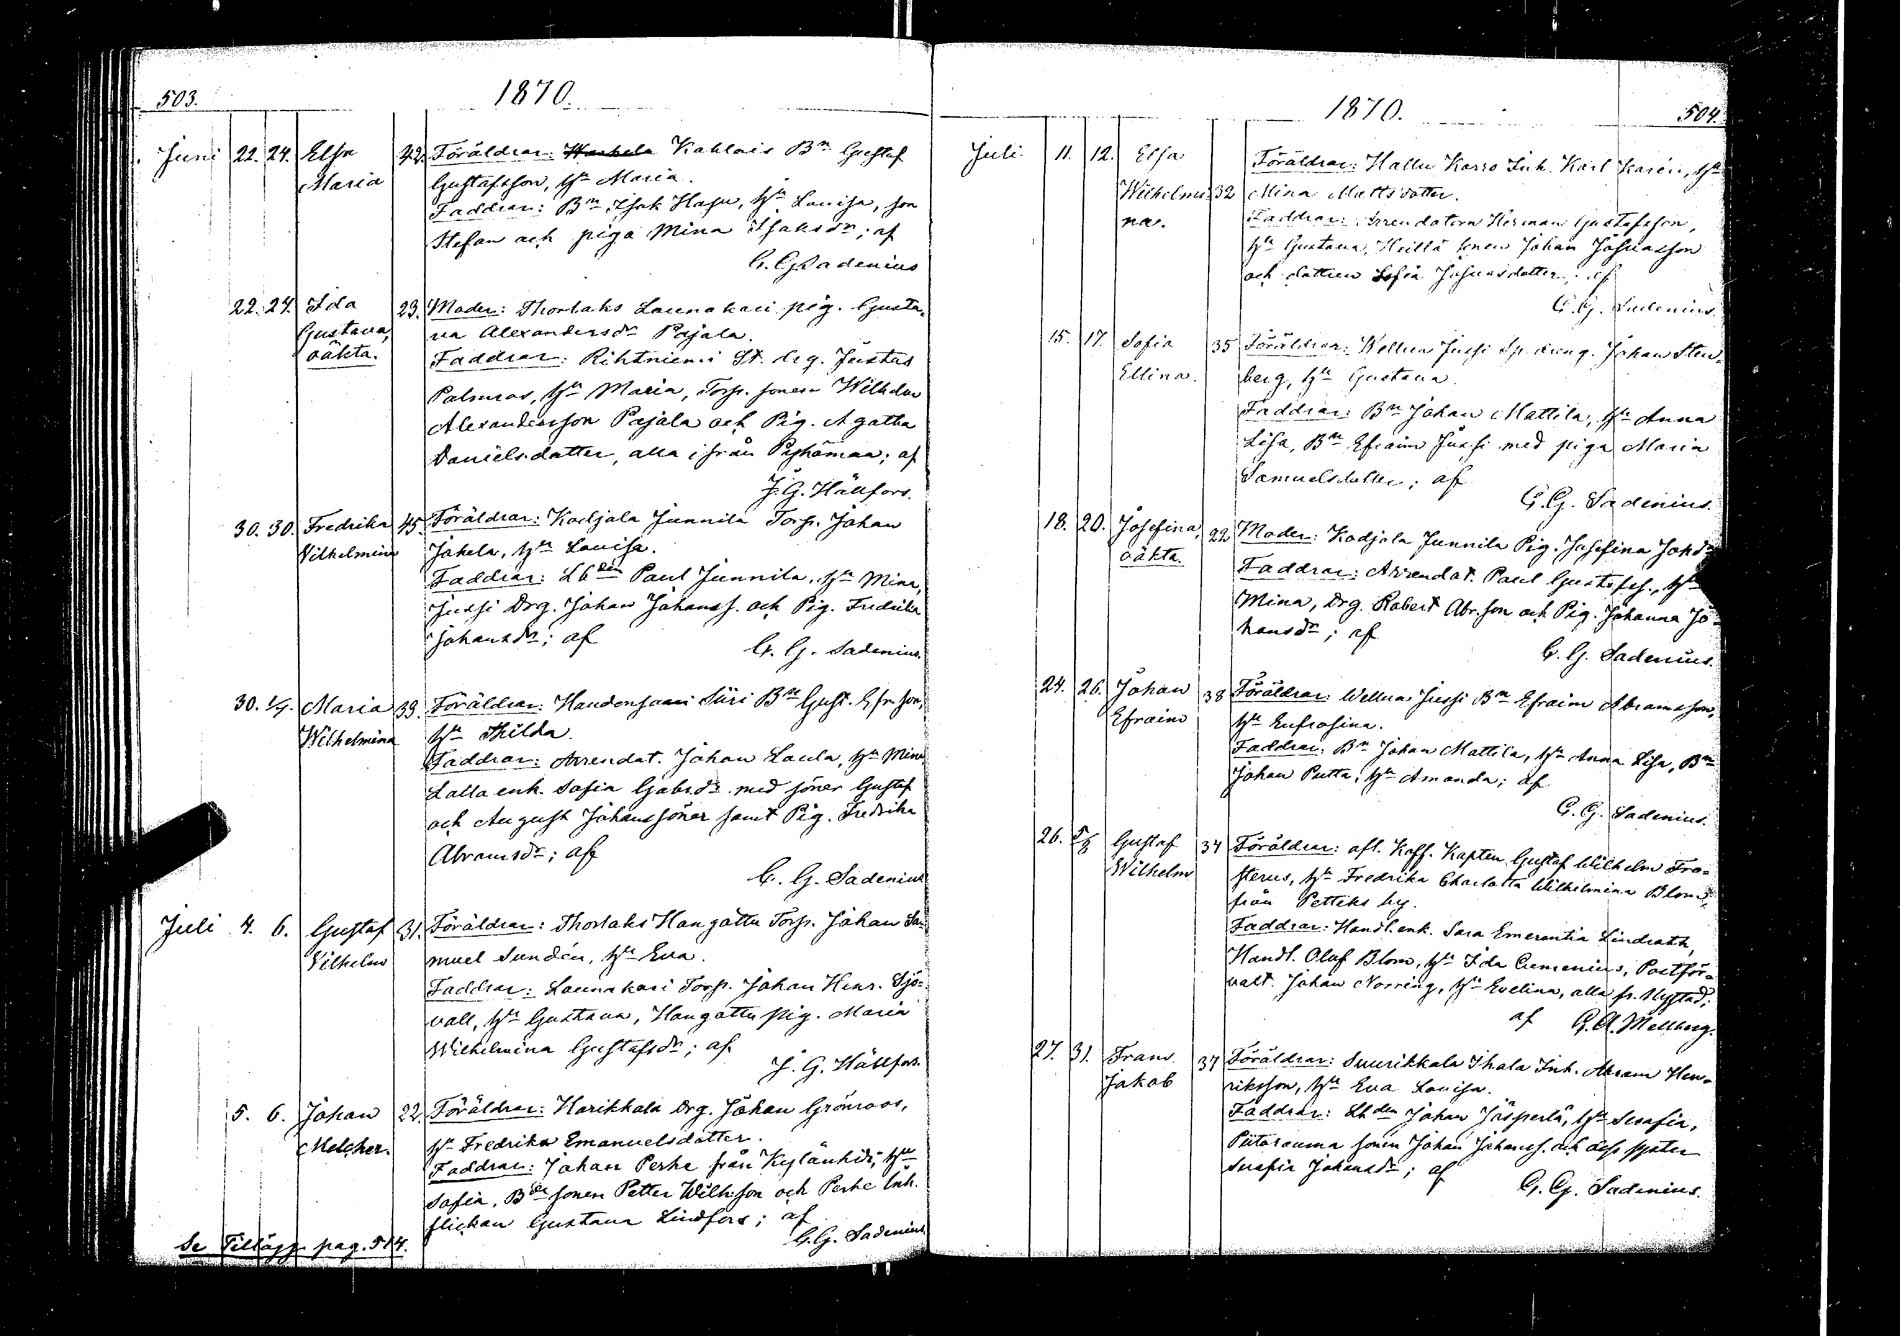 503.
1870.
Juni 22. 24. Elsa 42. Föräldrar: Kahlais Bn Gustaf
Maria Gustafsson, Hu Maria.
Faddrar: Bn Isak Hasu, Hu Lovisa, son
Stefan och piga Mina Isaksdr; af
G. G. Sadenius
22. 24. Ida 23. Moder: Thorlaks Launakari pig. Gusta-
Gustava, va Alexandersdr Pajala.
oäkta. Faddrar: Rihtniemi St. drg. Justus
Palmros, Hu Maria, Torp. sonen Wilhelm
Alexandersson Pajala och Pig. Agatha
Danielsdatter, alla ifrån Pyhämaa; af
J. G. Hällfors.
30. 30. Fredrika 45. Föräldrar: Kodjala Junnila Torp. Johan
Vilhelmina Jakela, Hu Lovisa.
Faddrar: Lbden Paul Junnila, Hu Mina,
Jussi Drg. Johan Johanss. och Pig. Fredrika
Johansdr; af G. G. Sadenius.
30. 1/7. Maria 39. Föräldrar: Haudensaari Siiri Bn Gust. Efr. son,
Wilhelmina Hu Thilda.
Faddrar: Arrendat. Johan Laula, Hu Mina
Lalla enk. Sofia Gabrdr med söner Gustaf
och August Johanssöner samt Pig. Fredrika
Abramsdr; af
G. G. Sadenius
Juli 4. 6. Gustaf 31. Föräldrar: Thorlaks Hangattu Torp. Johan Sa-
Vilhelm muel Sundén, Hu Eva.
Faddrar: Launakari Torp. Johan Henr. Sjö-
vall, Hu Gustava, Hangattu pig. Maria
Wilhelmina Gustafsdr; af
J. G. Hällfors.
5. 6. Johan 22. Föräldrar: Harikkala Drg. Johan Grönroos,
Melcher. Hu Fredrika Emanuelsdatter.
Faddrar: Johan Perhe från Kylänkdi, Hu
Sofia, Bde sonen Petter Wilhson och Perhe Inh.
flickan Gustava Lindfors; af
G. G. Sadenius
Se Tillägg pag. 514.
1870.
504.
Juli 11. 12. Elsa Föräldrar: Hallu Karso Inh. Karl Karén, Hu
Wilhelmi- 32 Mina Mattsdotter.
na. Faddrar: Arrendatorn Herman Gustafsson,
Hu Gustava, Heillä sonen Johan Josuasson
och dottren Sofia Josuasdotter; af
G. G. Sadenius.
15. 17. Sofia 35 Föräldrar: Wellua Jussi Sp. dräng. Johan Sten-
Ellina. berg, Hu Gustava.
Faddrar: Bn Johan Mattila, Hu Anna
Lisa, Bn Efraim Jussi med piga Maria
Samuelsdatter; af
G. G. Sadenius.
18. 20. Josefina, 22 Moder: Kodjala Junnila Pig. Josefina Johdr
oäkta. Faddrar: Arrendat. Paul Gustafss., Hu
Mina, Drg. Robert Abr.son och Pig. Johanna Jo-
hansdr; af
G. G. Sadenius.
24. 26. Johan 38 Föräldrar: Wellua Jussi Bn Efraim Abramsson,
Efraim Hu Eufrosina.
Faddrar: Bn Johan Mattila, Hu Anna Lisa, Bn
Johan Putta, Hu Amanda; af
G. G. Sadenius.
26. 5/8 Gustaf 34 Föräldrar: afl. Koff. Kapten Gustaf Wilhelm Fro-
Wilhelm sterus, Hu Fredrika Charlotta Wilhelmina Blom,
från Petteks by.
Faddrar: Handl.enk. Sara Emerentia Lindroth,
Handl. Olof Blom, Hu Ida Cumenius, Postför-
valt. Johan Norring, Hu Evelina, alla fr. Nystad;
af G. A. Mellberg.
27. 31. Frans 37 Föräldrar: Suurikkala Ihala Inh. Abram Hen-
Jakob riksson, Hu Eva Lovisa.
Faddrar: Lbden Johan Jäsperlä, Hu Serafia,
Piitarauma sonen Johan Johanss. och dess syster
Serafia Johansdr; af
G. G. Sadenius.